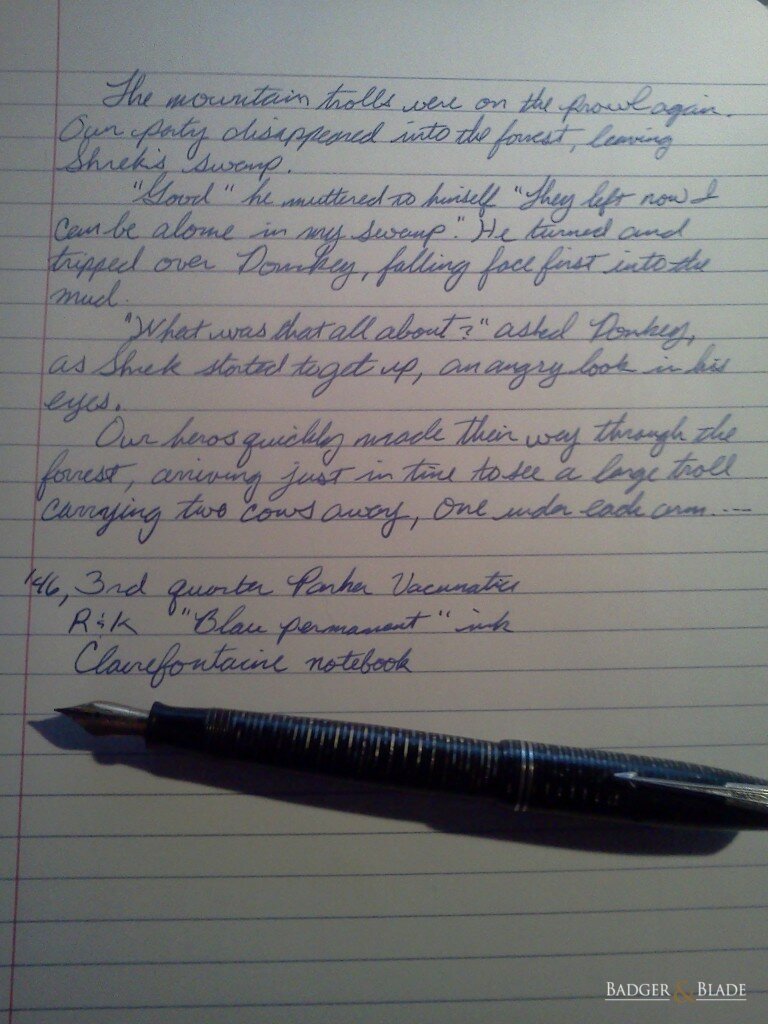 The mountain trolls were on the prowl again.
Our party disappeared into the forrest, leaving
Shrek's swamp.
"Good" he muttered to himself "They left now I
can be alone in my swamp." He turned and
tripped over Donkey, falling face first into the
mud.
"What was that all about?" asked Donkey,
as Shrek started to get up, an angry look in his
eyes.
Our heros quickly made their way through the
forrest, arriving just in time to see a large troll
carrying two cows away, one under each arm....
'46, 3rd quarter Parker Vacumatic
R&K "Blau permanent" ink
Clairefontaine notebook
BADGER & BLADE